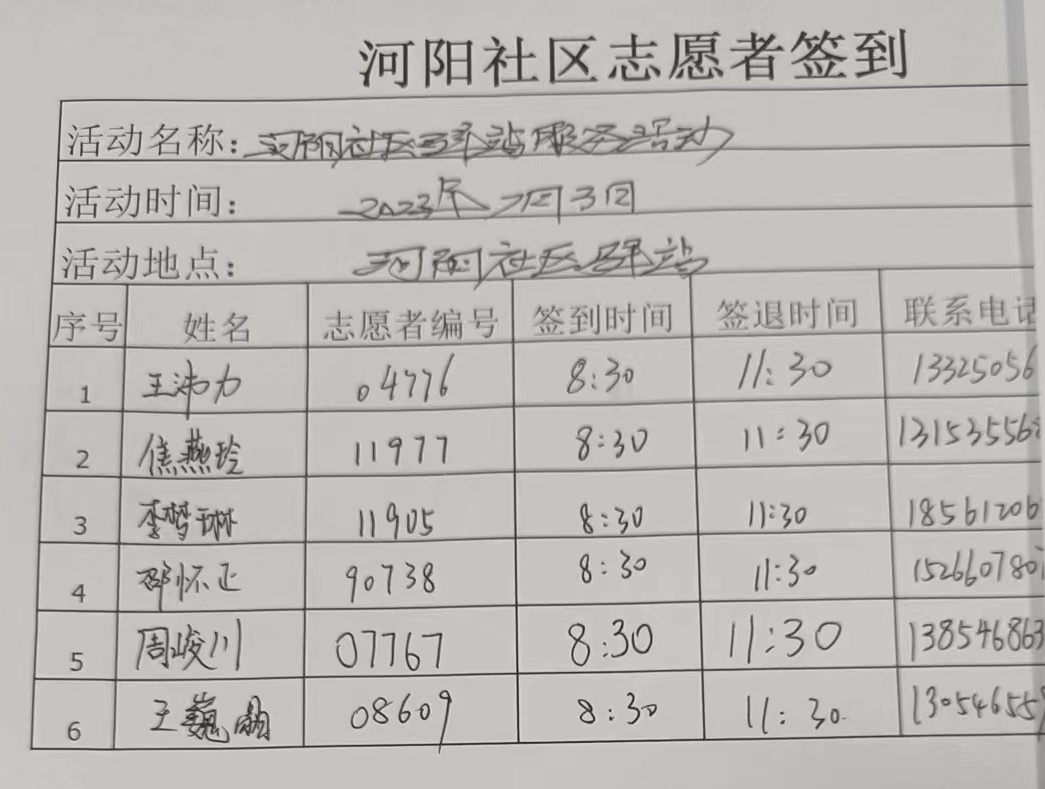 河阳社区志愿者签到
活动名称：河阳社区驿站服务活动
活动时间：2023年7月3日
活动地点：河阳社区驿站
序号 姓名 志愿者编号 签到时间 签退时间 联系电话
1 王沛力 04776 8:30 11:30 13325056
2 焦燕玲 11977 8:30 11:30 13153556
3 李梦琳 11905 8:30 11:30 18561206
4 邵怀正 90738 8:30 11:30 152660780
5 周峻川 07767 8:30 11:30 138546863
6 王巍 08609 8:30 11:30 13054655